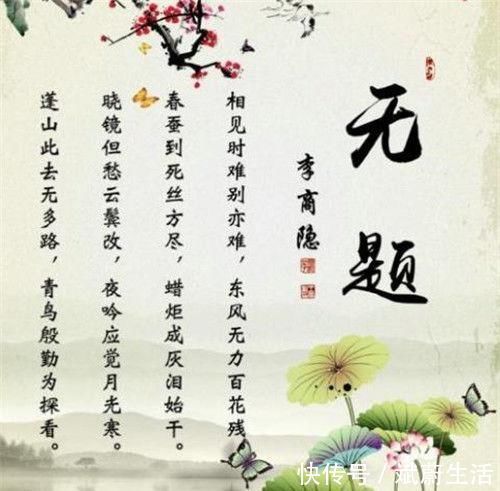 无题
李商隐
相见时难别亦难，东风无力百花残。
春蚕到死丝方尽，蜡炬成灰泪始干。
晓镜但愁云鬓改，夜吟应觉月光寒。
蓬山此去无多路，青鸟殷勤为探看。
快传号／斌蔚生活